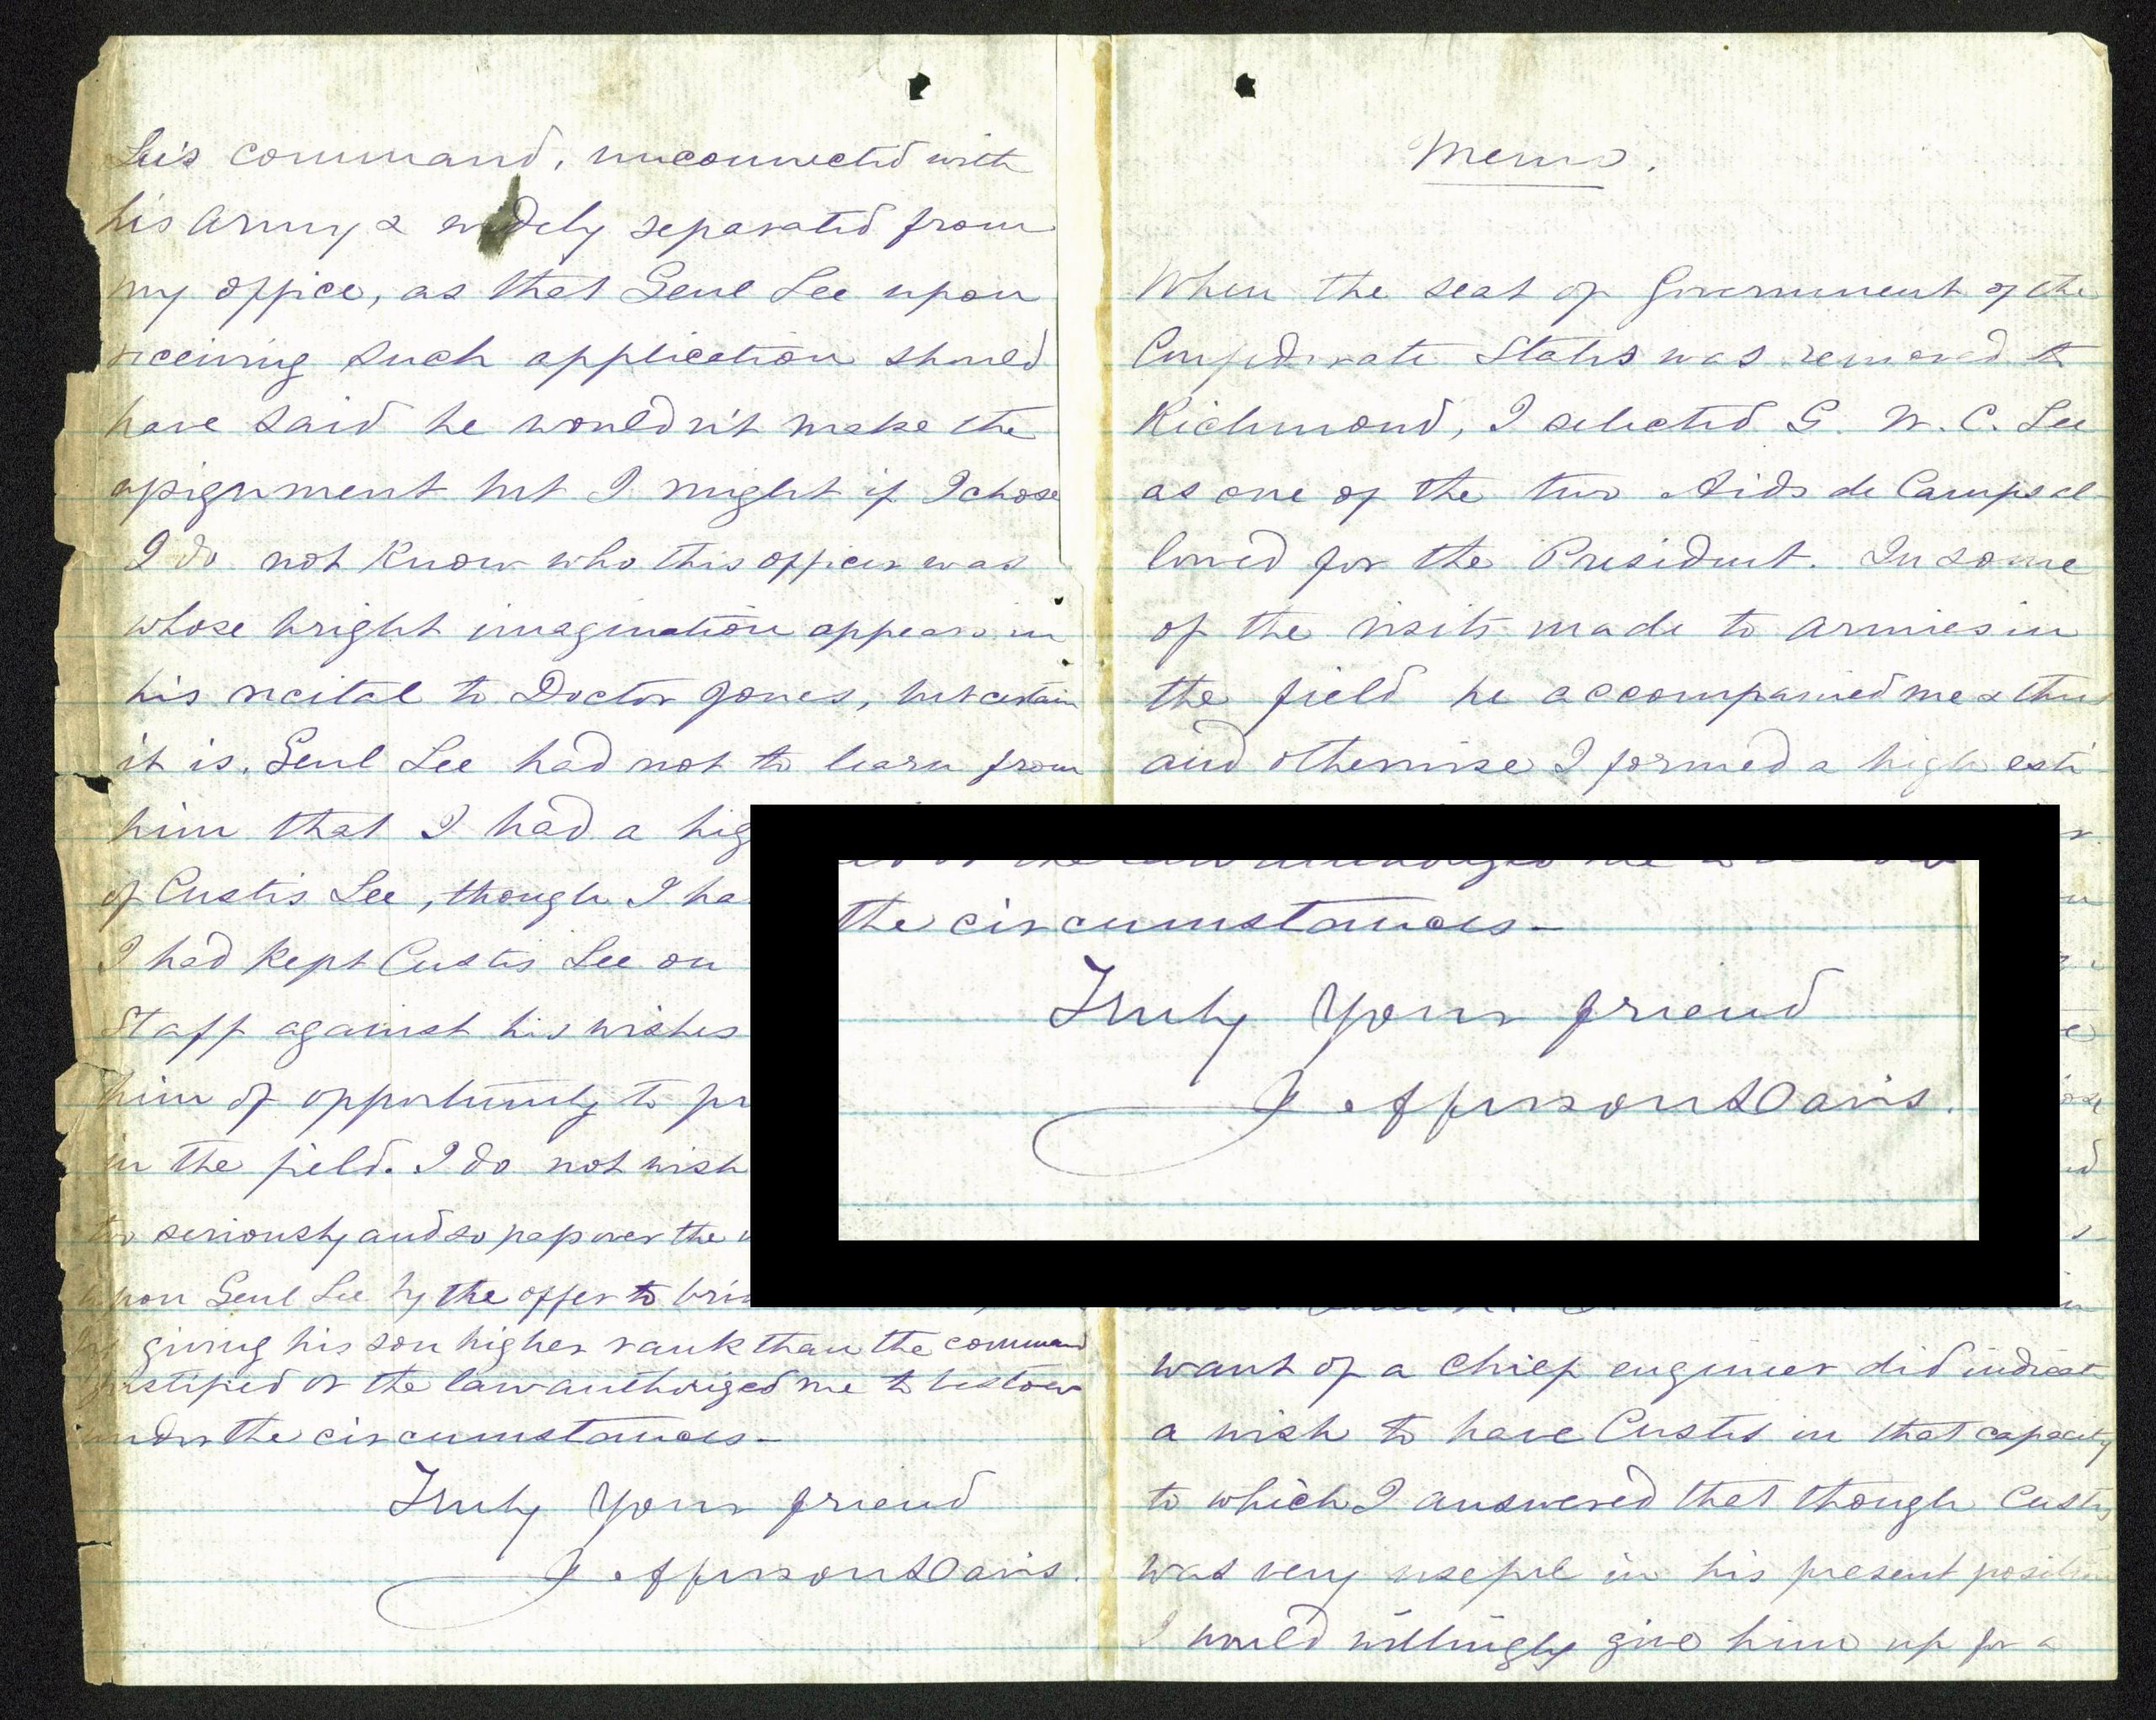 Lee's command, unconnected with
his army & widely separated from
my office, as that Genl Lee upon
receiving such application should
have said he wouldn't make the
assignment but I might if I chose
I do not know who this officer was
whose bright imagination appears in
his recital to Doctor Jones, but certain
it is. Genl Lee had not to learn from
him that I had a hig
of Custis Lee, though I ha
I had kept Custis Lee on
Staff against his wishes
him of opportunity to pr
in the field. I do not wish
too seriously and so pass over the
upon Genl Lee by the offer to bri
by giving his son higher rank than the command
justified or the law authorized me to bestow
under the circumstances-
Truly your friend
Jefferson Davis.
Memo.
When the seat of Government of the
Confederate States was removed to
Richmond, I selected G. W. C. Lee
as one of the two Aids de Camps al-
lowed for the President. In some
of the visits made to armies in
the field he accompanied me & thus
and otherwise I formed a high esti-
want of a Chief engineer did indicate
a wish to have Custis in that capacity
to which I answered that though Custis
was very useful in his present position
I would willingly give him up for a
the circumstances-
Truly your friend
Jefferson Davis.